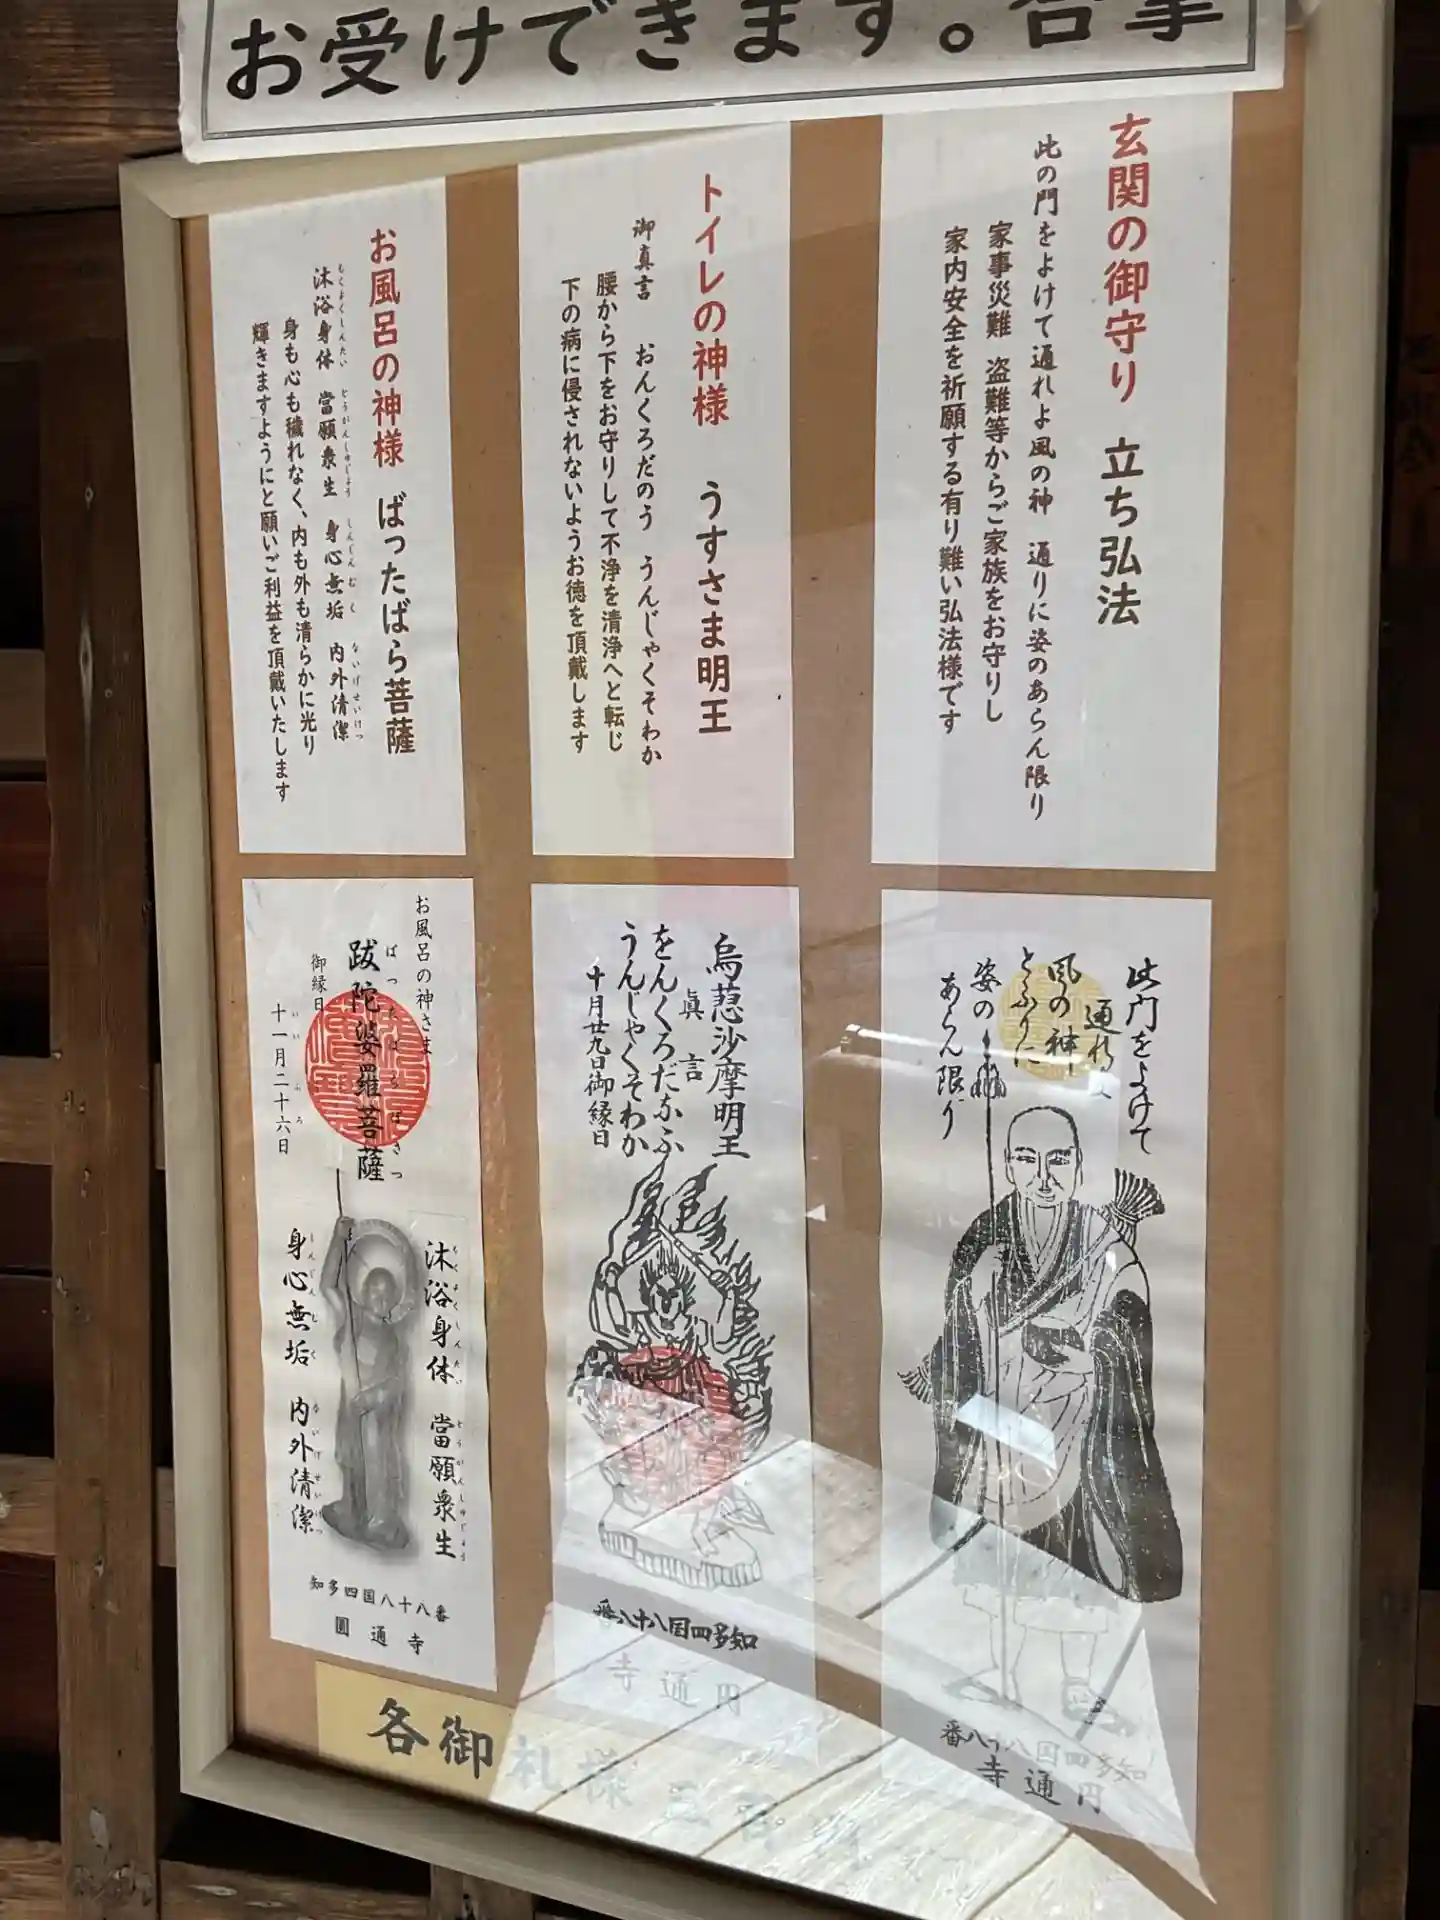 お受けできます。合掌
玄関の御守り 立ち弘法
此の門をよけて通れよ風の神 通りに姿のあらん限り
家事災難 盗難等からご家族をお守りし
家内安全を祈願する有り難い弘法様です
トイレの神様 うすさま明王
御真言 おんくろだのう うんじゃくそわか
腰から下をお守りして不浄を清浄へと転じ
下の病に侵されないようお徳を頂戴します
お風呂の神様 ばったばら菩薩
沐浴身体 當願衆生 身心無垢 内外清潔
もくよくしんたい とうがんしゅじょう しんじんむく ないげせいけつ
身も心も穢れなく、内も外も清らかに光り
輝きますようにと願いご利益を頂戴いたします
此門をよけて
通れよ
風の神
とふりに
姿の
あらん限り
番八十八国四多知
寺通円
烏蒭沙摩明王
眞言
をんくろだなふ
うんじゃくそわか
十月廿九日御縁日
番八十八国四多知
寺通円
お風呂の神さま
跋陀婆羅菩薩
ばったばらぼさつ
御縁日
いいふろ
十一月二十六日
沐浴身体 當願衆生
もくよくしんたい とうがんしゅじょう
身心無垢 内外清潔
しんじんむく ないげせいけつ
知多四国八十八番
圓通寺
各御札様